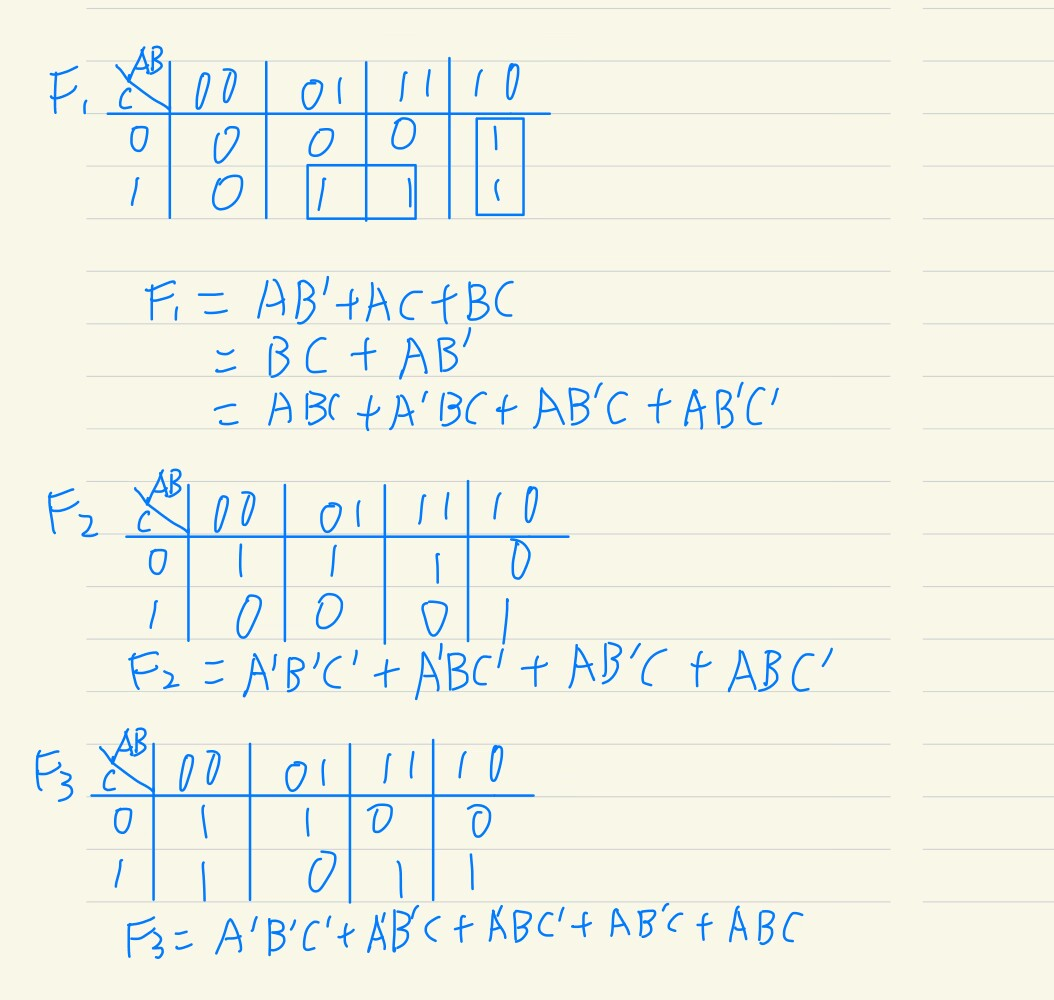 F₁ C AB 00 01 11 10
0 0 0 0 1
1 0 1 1 1
F₁ = AB'+AC+BC
= BC + AB'
= ABC + A'BC + AB'C + AB'C'
F₂ C AB 00 01 11 10
0 1 1 1 0
1 0 0 0 1
F₂ = A'B'C' + A'BC' + AB'C + ABC'
F₃ C AB 00 01 11 10
0 1 1 0 0
1 1 0 1 1
F₃ = A'B'C' + A'B'C + A'BC' + AB'C + ABC